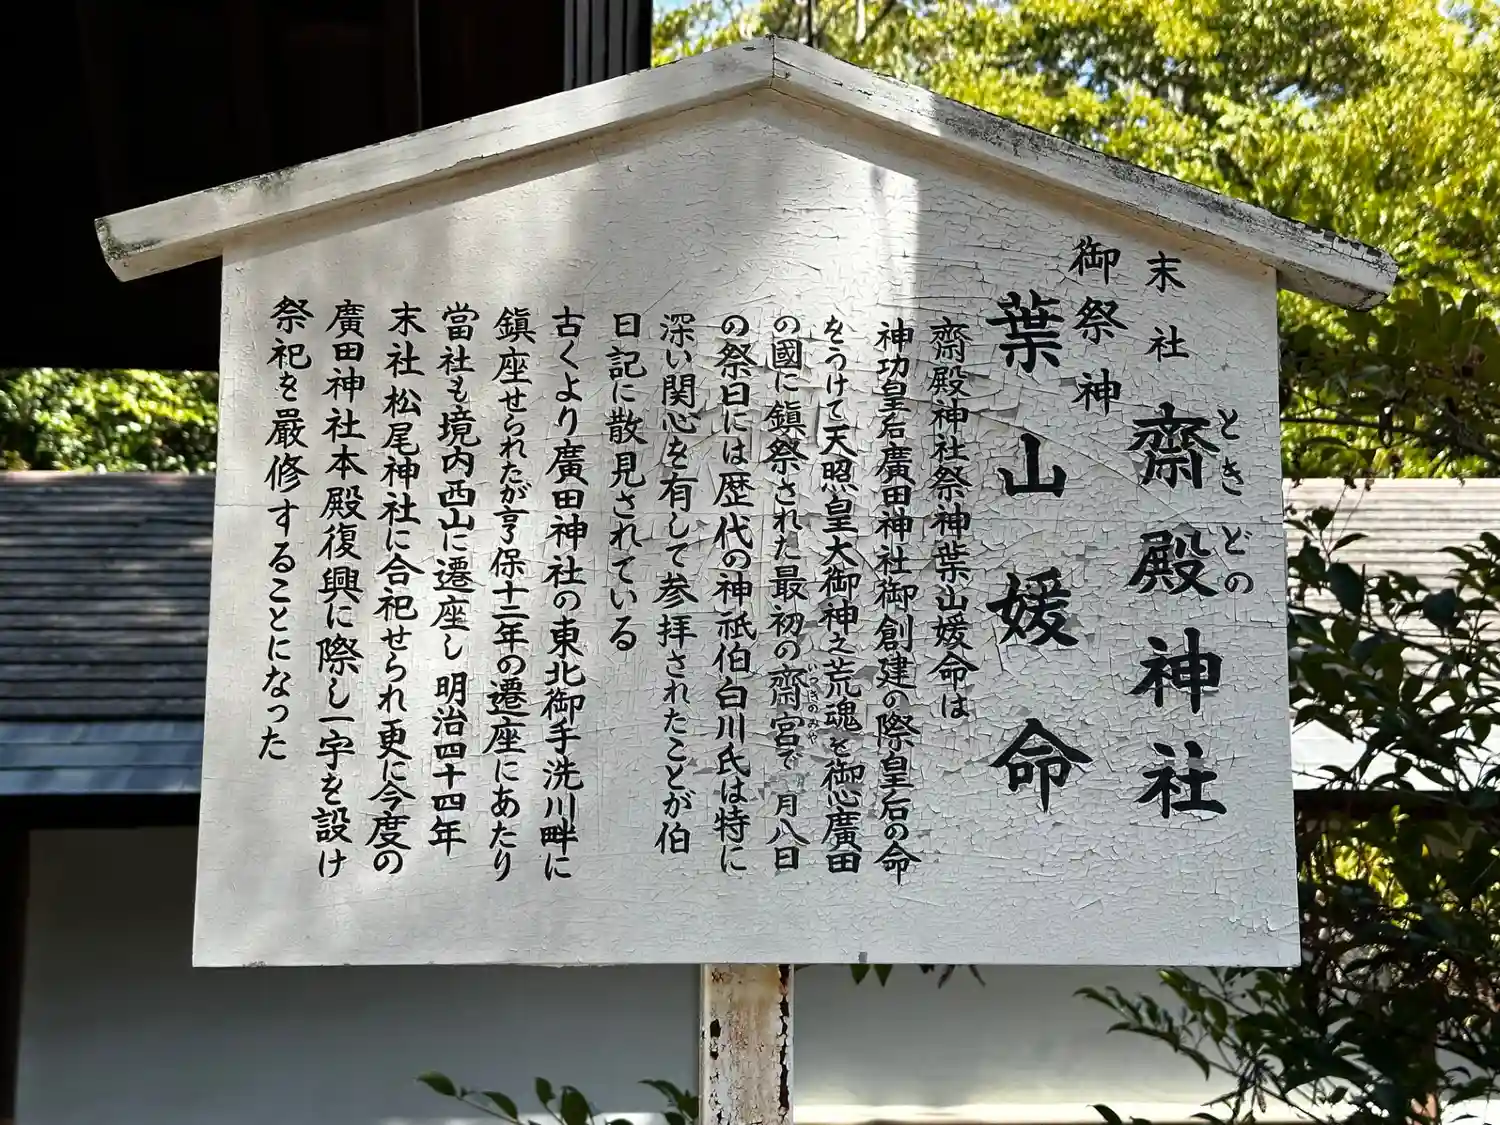 末社 齋殿神社
ときどの
御祭神
葉山媛命
齋殿神社祭神葉山媛命は
神功皇后廣田神社御創建の際皇后の命
をうけて天照皇大御神之荒魂を御心廣田
の國に鎭祭された最初の齋宮で 月八日
いつきのみや
の祭日には歴代の神祇伯白川氏は特に
深い関心を有して参拝されたことが伯
日記に散見されている
古くより廣田神社の東北御手洗川畔に
鎭座せられたが享保十二年の遷座にあたり
當社も境内西山に遷座し明治四十四年
末社松尾神社に合祀せられ更に今度の
廣田神社本殿復興に際し一宇を設け
祭祀を厳修することになった